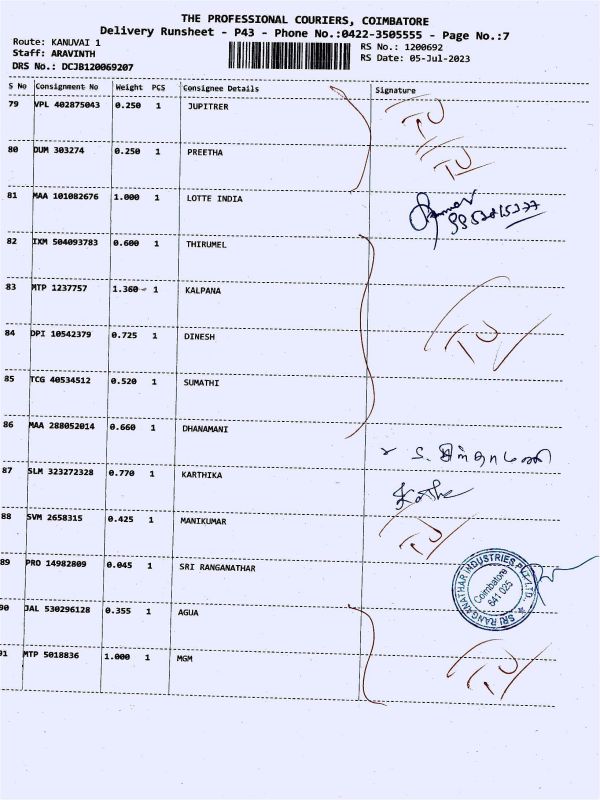 THE PROFESSIONAL COURIERS, COIMBATORE
Delivery Runsheet - P43 - Phone No.:0422-3505555 - Page No.:7
Route: KANUVAI 1
Staff: ARAVINTH
DRS No.: DCJB120069207
RS No.: 1200692
RS Date: 05-Jul-2023
S No Consignment No Weight PCS Consignee Details Signature
79 VPL 402875043 0.250 1 JUPITRER TU
80 DUM 303274 0.250 1 PREETHA TU
81 MAA 101082676 1.000 1 LOTTE INDIA
82 IXM 504093783 0.600 1 THIRUMEL
83 MTP 1237757 1.360 1 KALPANA
84 DPI 10542379 0.725 1 DINESH TU
85 TCG 40534512 0.520 1 SUMATHI
86 MAA 288052014 0.660 1 DHANAMANI
87 SLM 323272328 0.770 1 KARTHIKA
88 SVM 2658315 0.425 1 MANIKUMAR TU
89 PRO 14982809 0.045 1 SRI RANGANATHAR
SRI RANGANATHAR INDUSTRIES PVT. LTD.
Coimbatore
641 025
90 JAL 530296128 0.355 1 AGUA
91 MTP 5018836 1.000 1 MGM TU